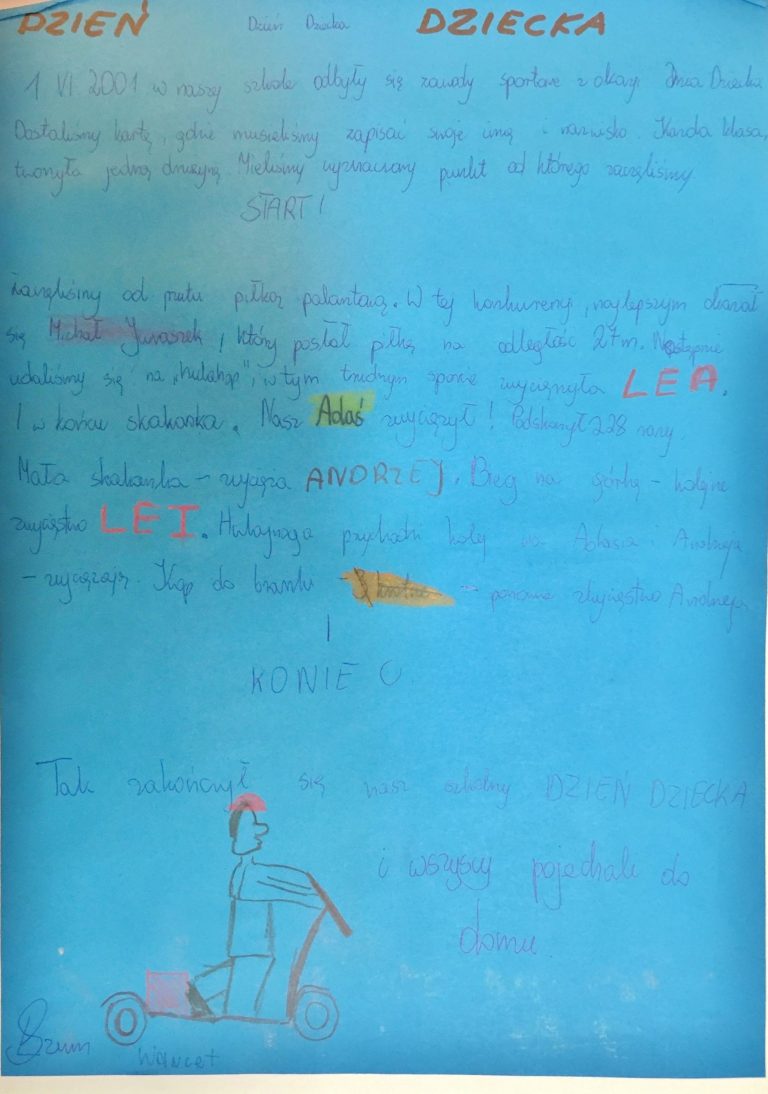 DZIEŃ Dzień Dziecka DZIECKA
1 VI 2001 w naszej szkole odbyły się zawody sportowe z okazji Dnia Dziecka
Dostaliśmy kartę, gdzie musieliśmy zapisać swoje imię i nazwisko. Każda klasa,
tworzyła jedną drużynę. Mieliśmy wyznaczony punkt od którego zaczęliśmy.
START!
Zaczęliśmy od rzutu piłką palantową. W tej konkurencji, najlepszym okazał
się Michał Juraszek, który posłał piłkę na odległość 27m. Następnie
udaliśmy się na „hulahop", w tym trudnym sporcie zwyciężyła LEA.
I w końcu skakanka. Nasz Adaś zwyciężył! Podskoczył 228 razy.
Mała skakanka – zwycięża ANDRZEJ. Bieg na górkę – kolejne
zwycięstwo LEI. Hulajnoga przychodzi kolej na Adasia i Andrzeja
– zwyciężają. Kop do bramki – ponowne zwycięstwo Andrzeja
I
KONIEC
Tak zakończył się nasz szkolny DZIEŃ DZIECKA
i wszyscy pojechali do
domu.